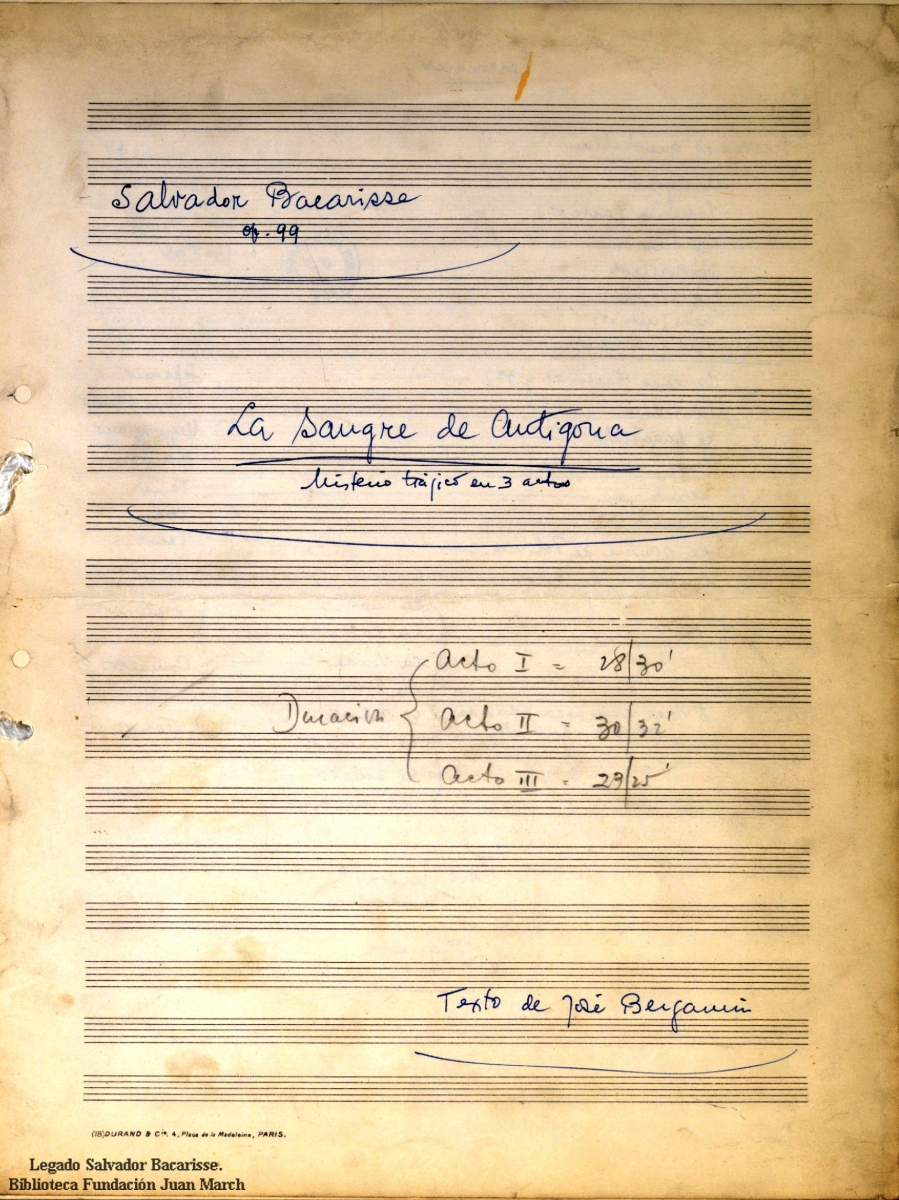 Salvador Bacarisse
op. 99
La Sangre de Antigona
Misterio trájico en 3 actos
Duración
Acto I = 28/30'
Acto II = 30/32'
Acto III = 23/25'
Texto de José Bergamin
(18) DURAND & Cie. 4, Place de la Madeleine, PARIS.
Legado Salvador Bacarisse.
Biblioteca Fundación Juan March